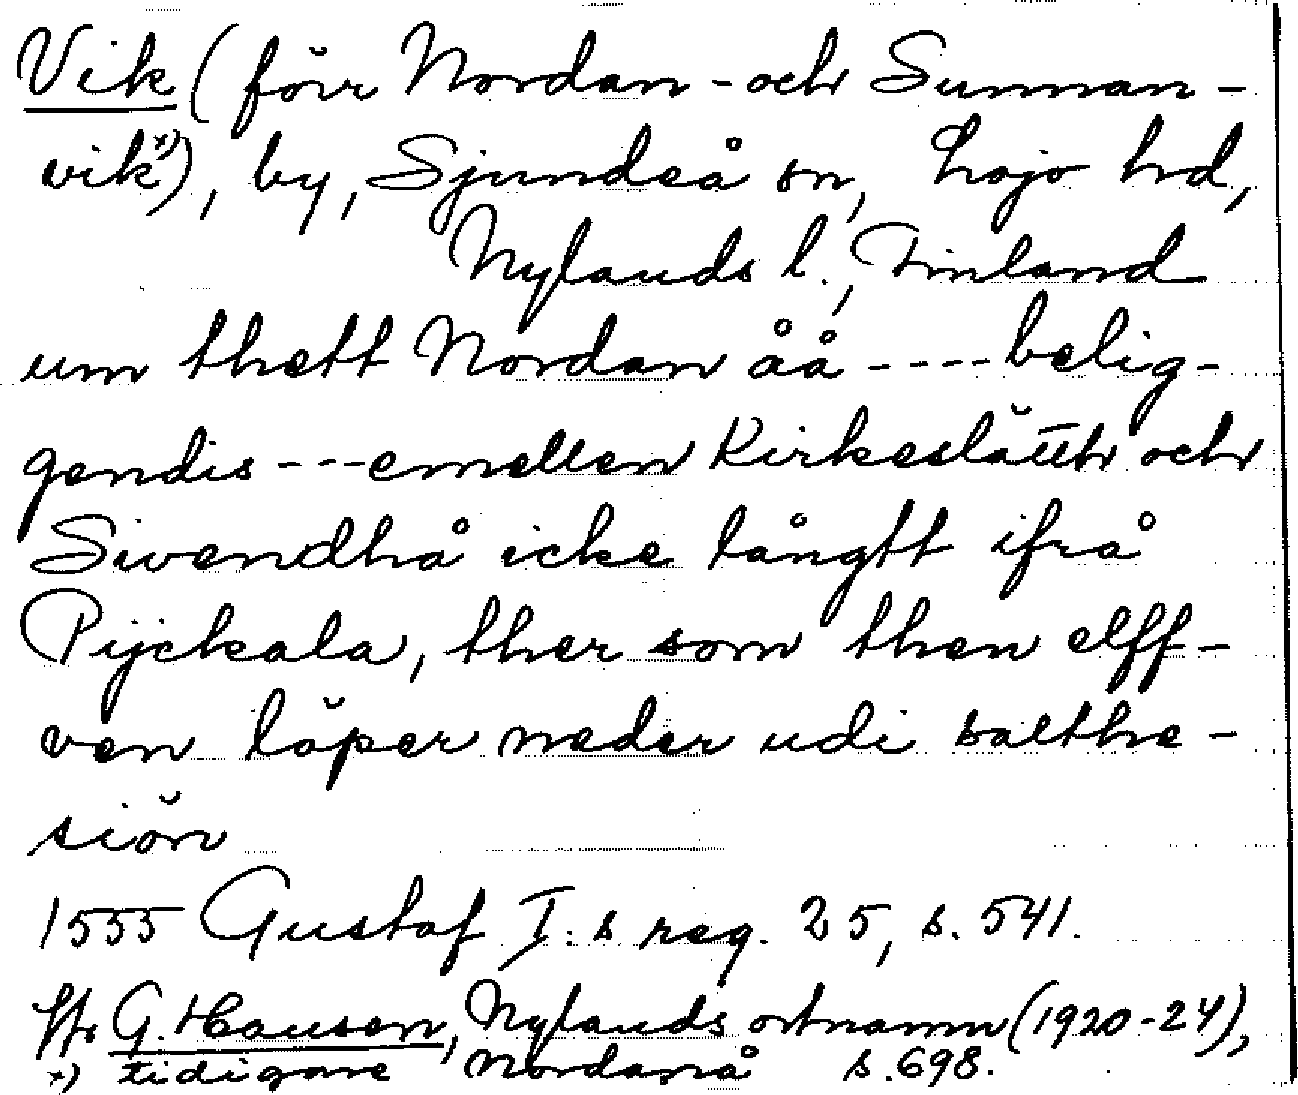 Vik (förr Nordan- och Sunnan-
vik*)), by, Sjundeå sn, Lojo hd,
Nylands l., Finland
um thett Nordan åå ---- belig-
gendis --- emellen Kirkeslätth och
Sivendhå icke långtt ifrå
Pijckala, ther som then elff-
ven löper neder udi salthe-
siön
1555 Gustaf I:s reg. 25, s. 541.
Jfr G. Hausen, Nylands ortnamn (1920-24),
*) tidigare Nordanå s. 698.